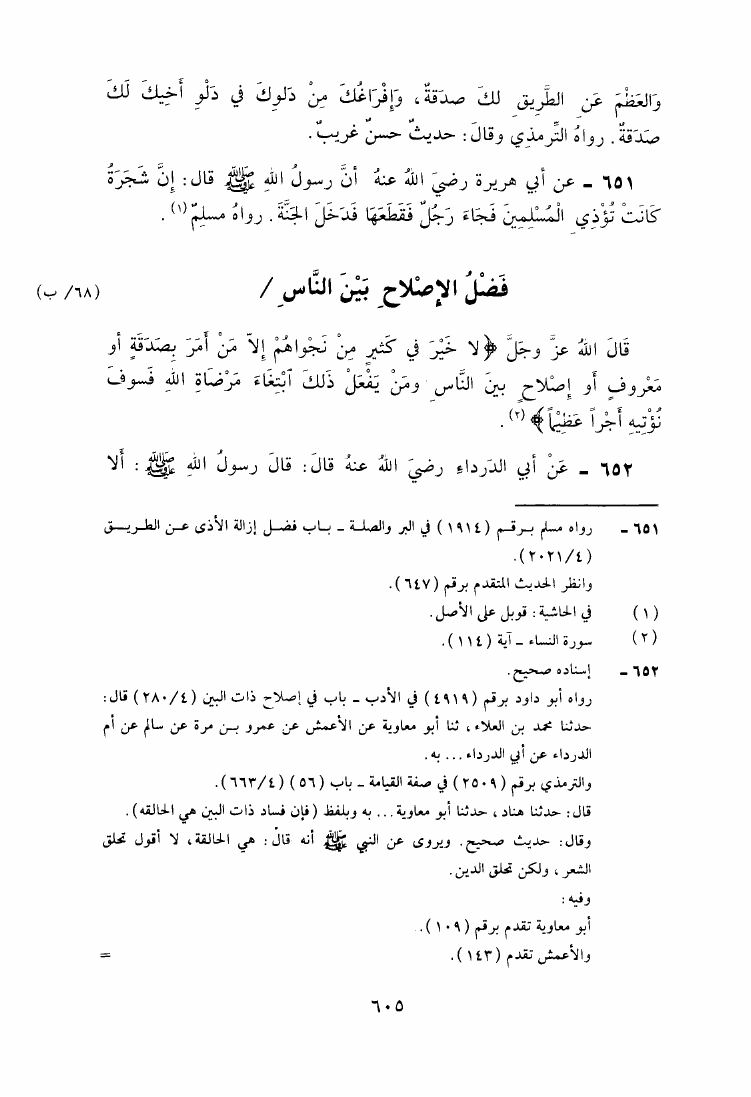 وَالعَظْمَ عَنِ الطَّرِيقِ لكَ صدقةٌ، وَإِفْرَاغُكَ مِنْ دَلوِكَ في دَلْوِ أَخِيكَ لَكَ
صَدَقةٌ. رواهُ التِّرمذي وقالَ: حديثٌ حسنٌ غريبٌ.
٦٥١ - عن أبي هريرة رضيَ اللهُ عنهُ أنَّ رسولُ اللهِ ﷺ قال: إنَّ شَجَرَةً
كَانَتْ تُؤْذِي الْمُسْلِمِينَ فَجَاءَ رَجُلٌ فَقَطَعَهَا فَدَخَلَ الجَنَّةَ. رواهُ مسلمٌ(١).
فَضْلُ الإصْلاحِ بَيْنَ النَّاسِ / (٦٨/ ب)
قَالَ اللهُ عزَّ وجَلَّ ﴿لا خَيْرَ في كَثيرٍ مِنْ نَجْواهُمْ إلاّ مَنْ أَمَرَ بِصَدَقَةٍ أو
مَعْروفٍ أو إصْلاحٍ بينَ النَّاسِ ومَنْ يَفْعَلْ ذَلكَ ٱبْتِغَاءَ مَرْضَاةِ اللهِ فَسوفَ
نُؤْتِيهِ أجْراً عَظِيْماً﴾(٢).
٦٥٢ - عَنْ أبي الدَرداءِ رضيَ اللهُ عنهُ قالَ: قالَ رسولُ اللهِ ﷺ: أَلا
٦٥١ - رواه مسلم بـرقـم (١٩١٤) في البر والصلـة - بـاب فضـل إزالة الأذى عـن الطريـق
(٢٠٢١/٤).
وانظر الحديث المتقدم برقم (٦٤٧).
(١) في الحاشية: قوبل على الأصل.
(٢) سورة النساء - آية (١١٤).
٦٥٢ - إسناده صحيح.
رواه أبو داود برقم (٤٩١٩) في الأدب - باب في إصلاح ذات البين (٢٨٠/٤) قال:
حدثنا محمد بن العلاء، ثنا أبو معاوية عن الأعمش عن عمرو بـن مرة عن سالم عن أم
الدرداء عن أبي الدرداء... به.
والترمذي برقم (٢٥٠٩) في صفة القيامة - باب (٥٦) (٦٦٣/٤).
قال: حدثنا هناد، حدثنا أبو معاوية... به وبلفظ (فإن فساد ذات البين هي الحالقه).
وقال: حديث صحيح. ويروى عن النبي ﷺ أنه قال: هي الحالقة، لا أقول تحلق
الشعر، ولكن تحلق الدين.
وفيه:
أبو معاوية تقدم برقم (١٠٩).
والأعمش تقدم (١٤٣). =
٦٠٥